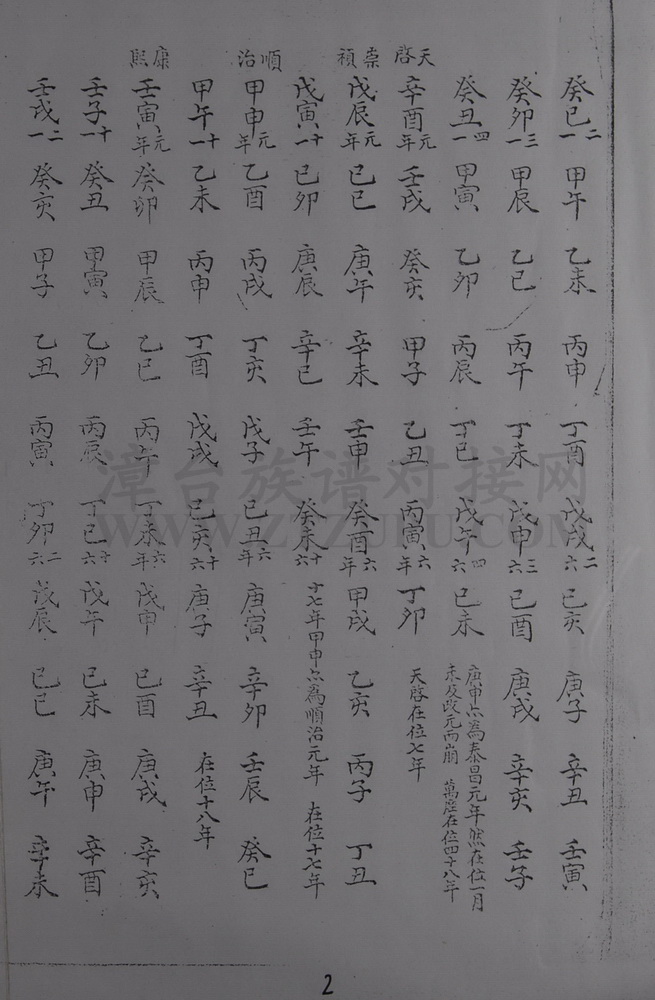 癸巳二一 甲午 乙未 丙申 丁酉 戊戌二六 己亥 庚子 辛丑 壬寅
癸卯三一 甲辰 乙巳 丙午 丁未 戊申三六 己酉 庚戌 辛亥 壬子
癸丑四一 甲寅 乙卯 丙辰 丁巳 戊午四六 己未 庚申点為泰昌元年然在位一月
未及改元而崩 萬歷在位四十八年
天啓 辛酉元年 壬戌 癸亥 甲子 乙丑 丙寅六年 丁卯 天啓在位七年
崇禎 戊辰元年 己巳 庚午 辛未 壬申 癸酉六年 甲戌 乙亥 丙子 丁丑
戊寅十一 己卯 庚辰 辛巳 壬午 癸未十六 十七年甲申点為順治元年 在位十七年
順治 甲申元年 乙酉 丙戌 丁亥 戊子 己丑六年 庚寅 辛卯 壬辰 癸巳
甲午十一 乙未 丙申 丁酉 戊戌 己亥十六 庚子 辛丑 在位十八年
康熙 壬寅元年 癸卯 甲辰 乙巳 丙午 丁未六年 戊申 己酉 庚戌 辛亥
壬子十一 癸丑 甲寅 乙卯 丙辰 丁巳十六 戊午 己未 庚申 辛酉
壬戌二一 癸亥 甲子 乙丑 丙寅 丁卯二六 戊辰 己巳 庚午 辛未
2
漳台族谱对接网
WWW.ZTZUPU.COM